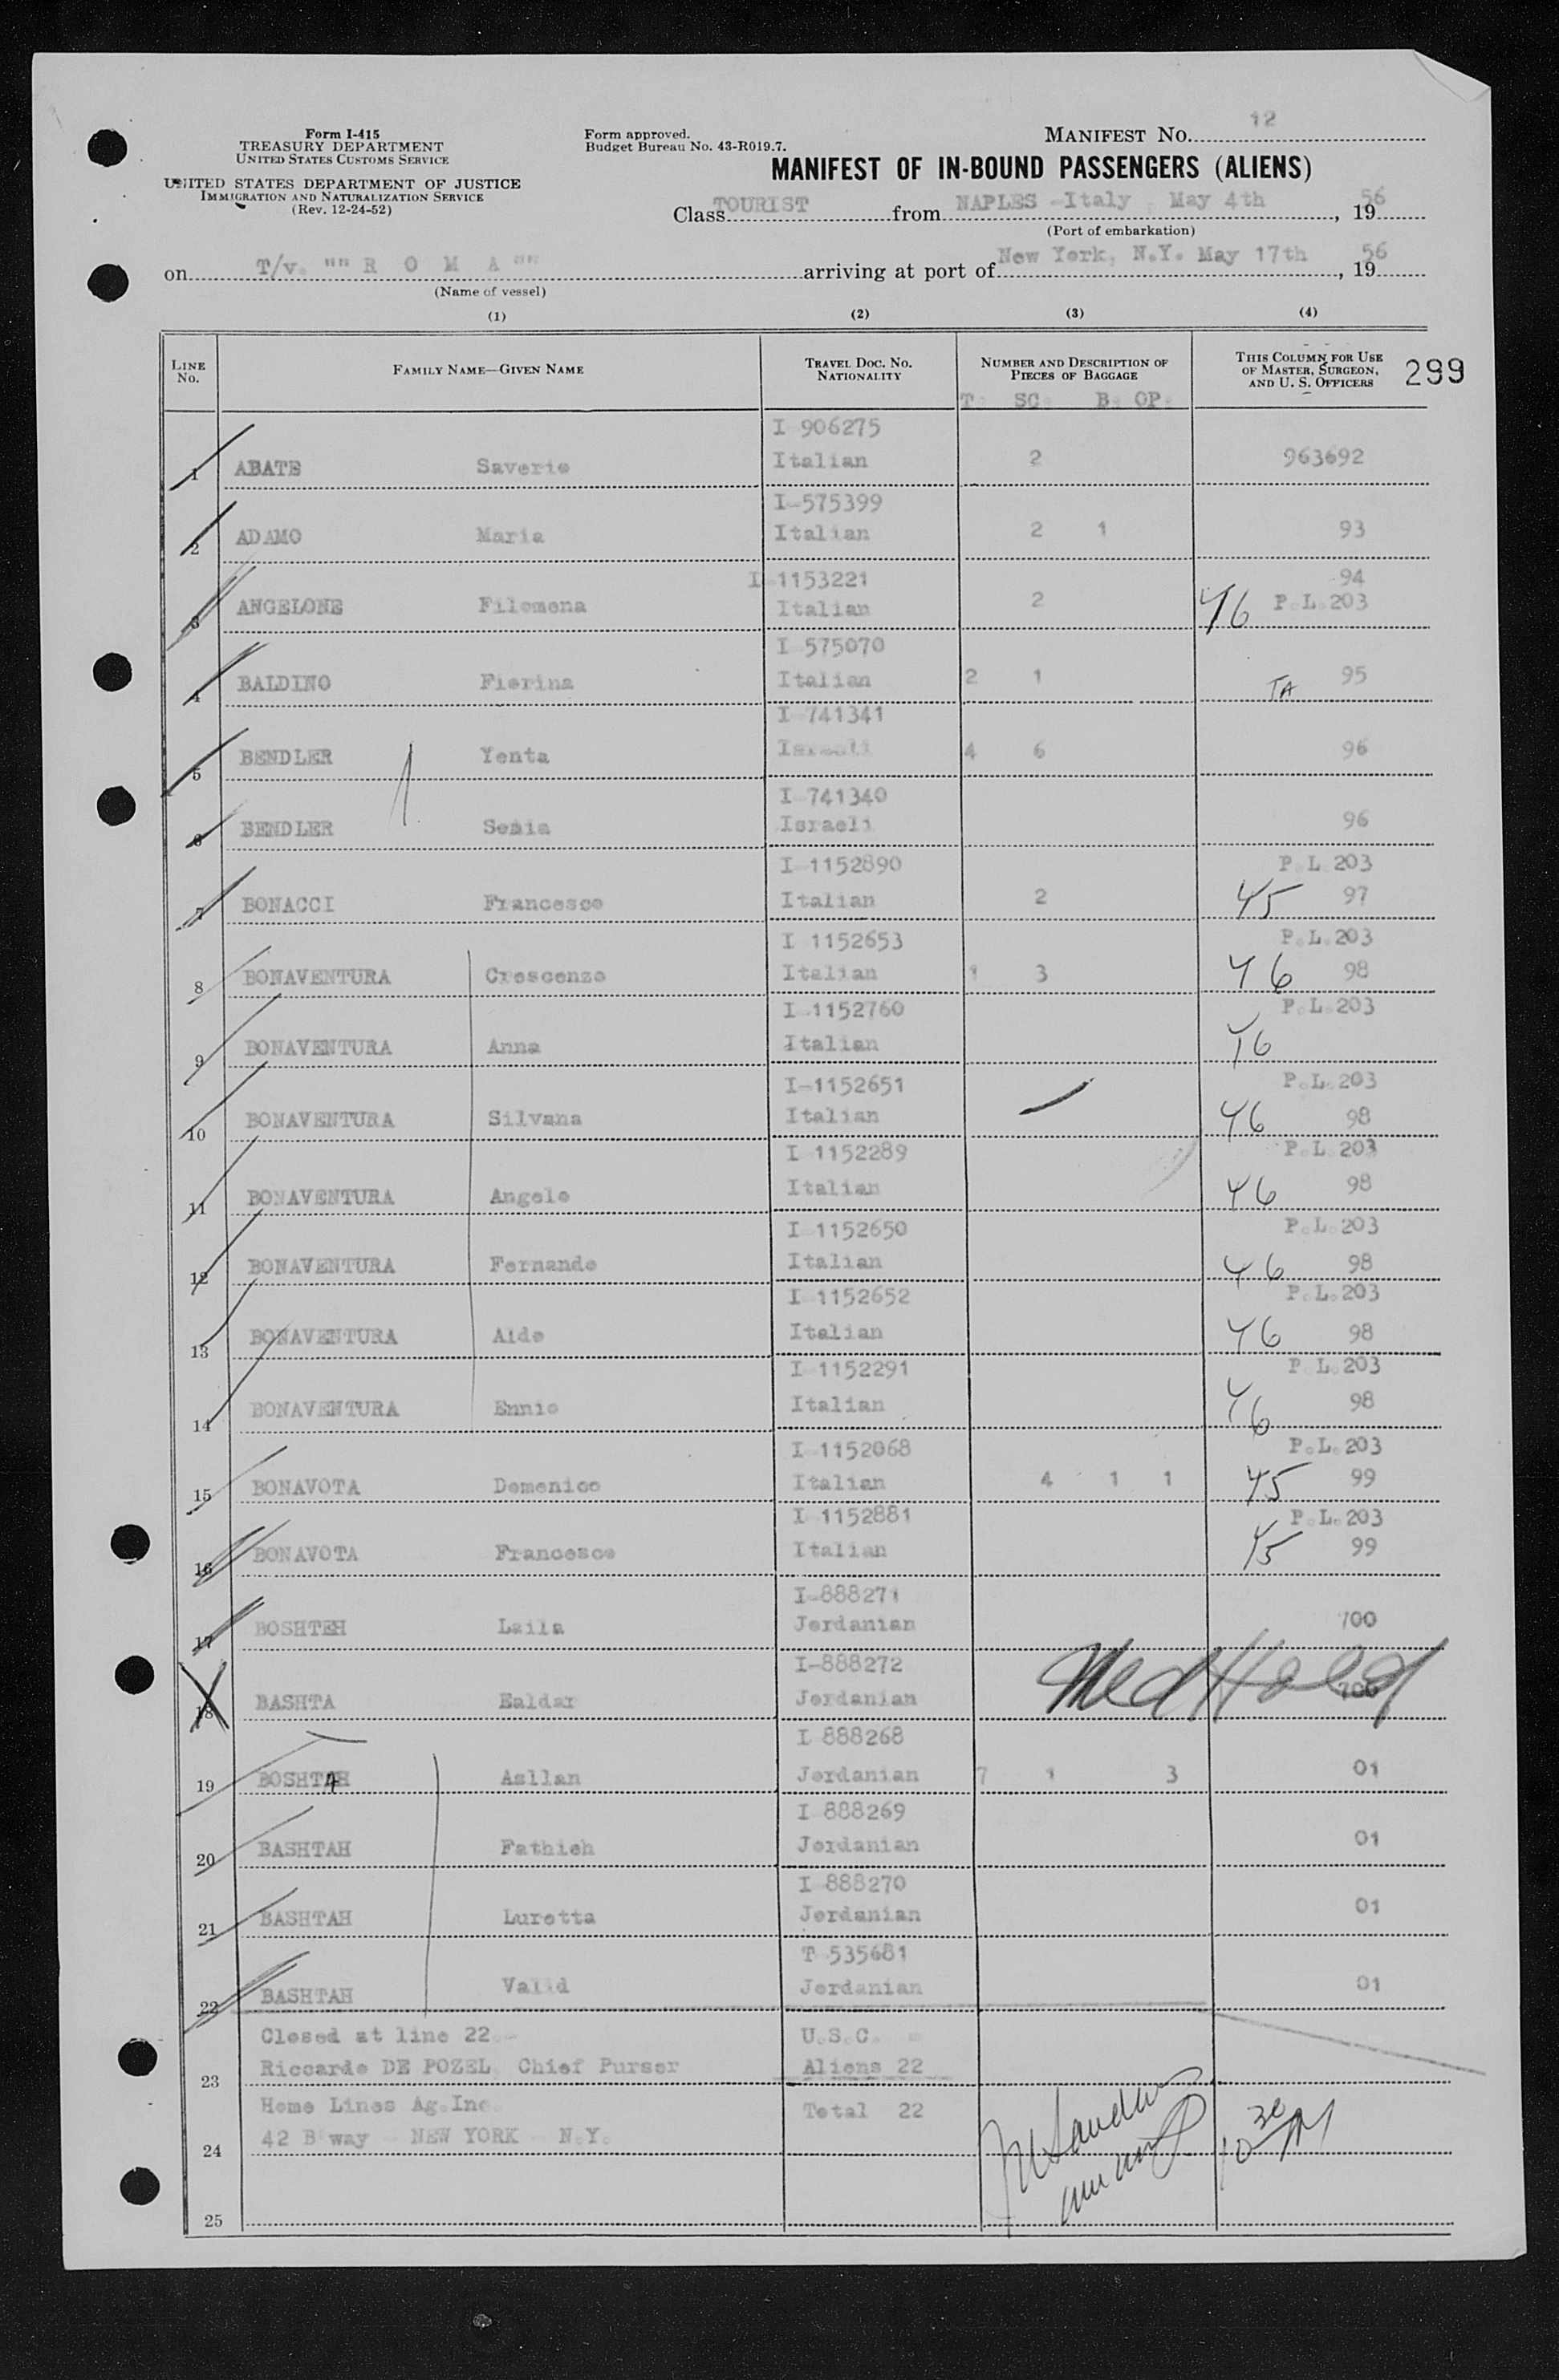 Form I-415
TREASURY DEPARTMENT
UNITED STATES CUSTOMS SERVICE
UNITED STATES DEPARTMENT OF JUSTICE
IMMIGRATION AND NATURALIZATION SERVICE
(Rev. 12-24-52)
Form approved.
Budget Bureau No. 43-R019.7.
MANIFEST NO. 12
MANIFEST OF IN-BOUND PASSENGERS (ALIENS)
Class TOURIST from NAPLES -Italy , May 4th , 19 56
(Port of embarkation)
on T/v. "" R O M A "" arriving at port of New York, N.Y. May 17th , 19 56
(Name of vessel)
(1) (2) (3) (4)
LINE No. FAMILY NAME—GIVEN NAME TRAVEL DOC. NO. NATIONALITY NUMBER AND DESCRIPTION OF PIECES OF BAGGAGE THIS COLUMN FOR USE OF MASTER, SURGEON, AND U. S. OFFICERS 299
T. SC. B. OP.
I 906275
1 ABATE Saverio Italian 2 963692
I-575399
2 ADAMO Maria Italian 2 1 93
I 1153221 94
3 ANGELONE Filomena Italian 2 46 P.L.203
I 575070
4 BALDINO Fiorina Italian 2 1 TA 95
I 741341
5 BENDLER Yenta Israeli 4 6 96
I 741340
6 BENDLER Israeli 96
I 1152890 P.L.203
7 BONACCI Francesco Italian 2 45 97
I 1152653 P.L.203
8 BONAVENTURA Crescenzo Italian 1 3 46 98
I 1152760 P.L.203
9 BONAVENTURA Anna Italian 46
I-1152651 P.L.203
10 BONAVENTURA Silvana Italian 46 98
I 1152289 P.L.203
11 BONAVENTURA Angelo Italian 46 98
I 1152650 P.L.203
12 BONAVENTURA Fernando Italian 46 98
I 1152652 P.L.203
13 BONAVENTURA Aldo Italian 46 98
I 1152291 P.L.203
14 BONAVENTURA Ennio Italian 46 98
I 1152068 P.L.203
15 BONAVOTA Domenico Italian 4 1 1 45 99
I 1152881 P.L.203
16 BONAVOTA Francesco Italian 45 99
I-888271
17 BOSHTEH Laila Jordanian 700
I-888272
18 BASHTA Ealdar Jordanian Med Hold 700
I 888268
19 BOSHTAH Asllan Jordanian 7 1 3 01
I 888269
20 BASHTAH Fathieh Jordanian 01
I 888270
21 BASHTAH Luretta Jordanian 01
T 535681
22 BASHTAH Valid Jordanian 01
Closed at line 22.- U.S.C. =
23 Riccardo DE POZEL, Chief Purser Aliens 22
Home Lines Ag.Inc. Total 22
24 42 B way - NEW YORK - N.Y.
10 30
25